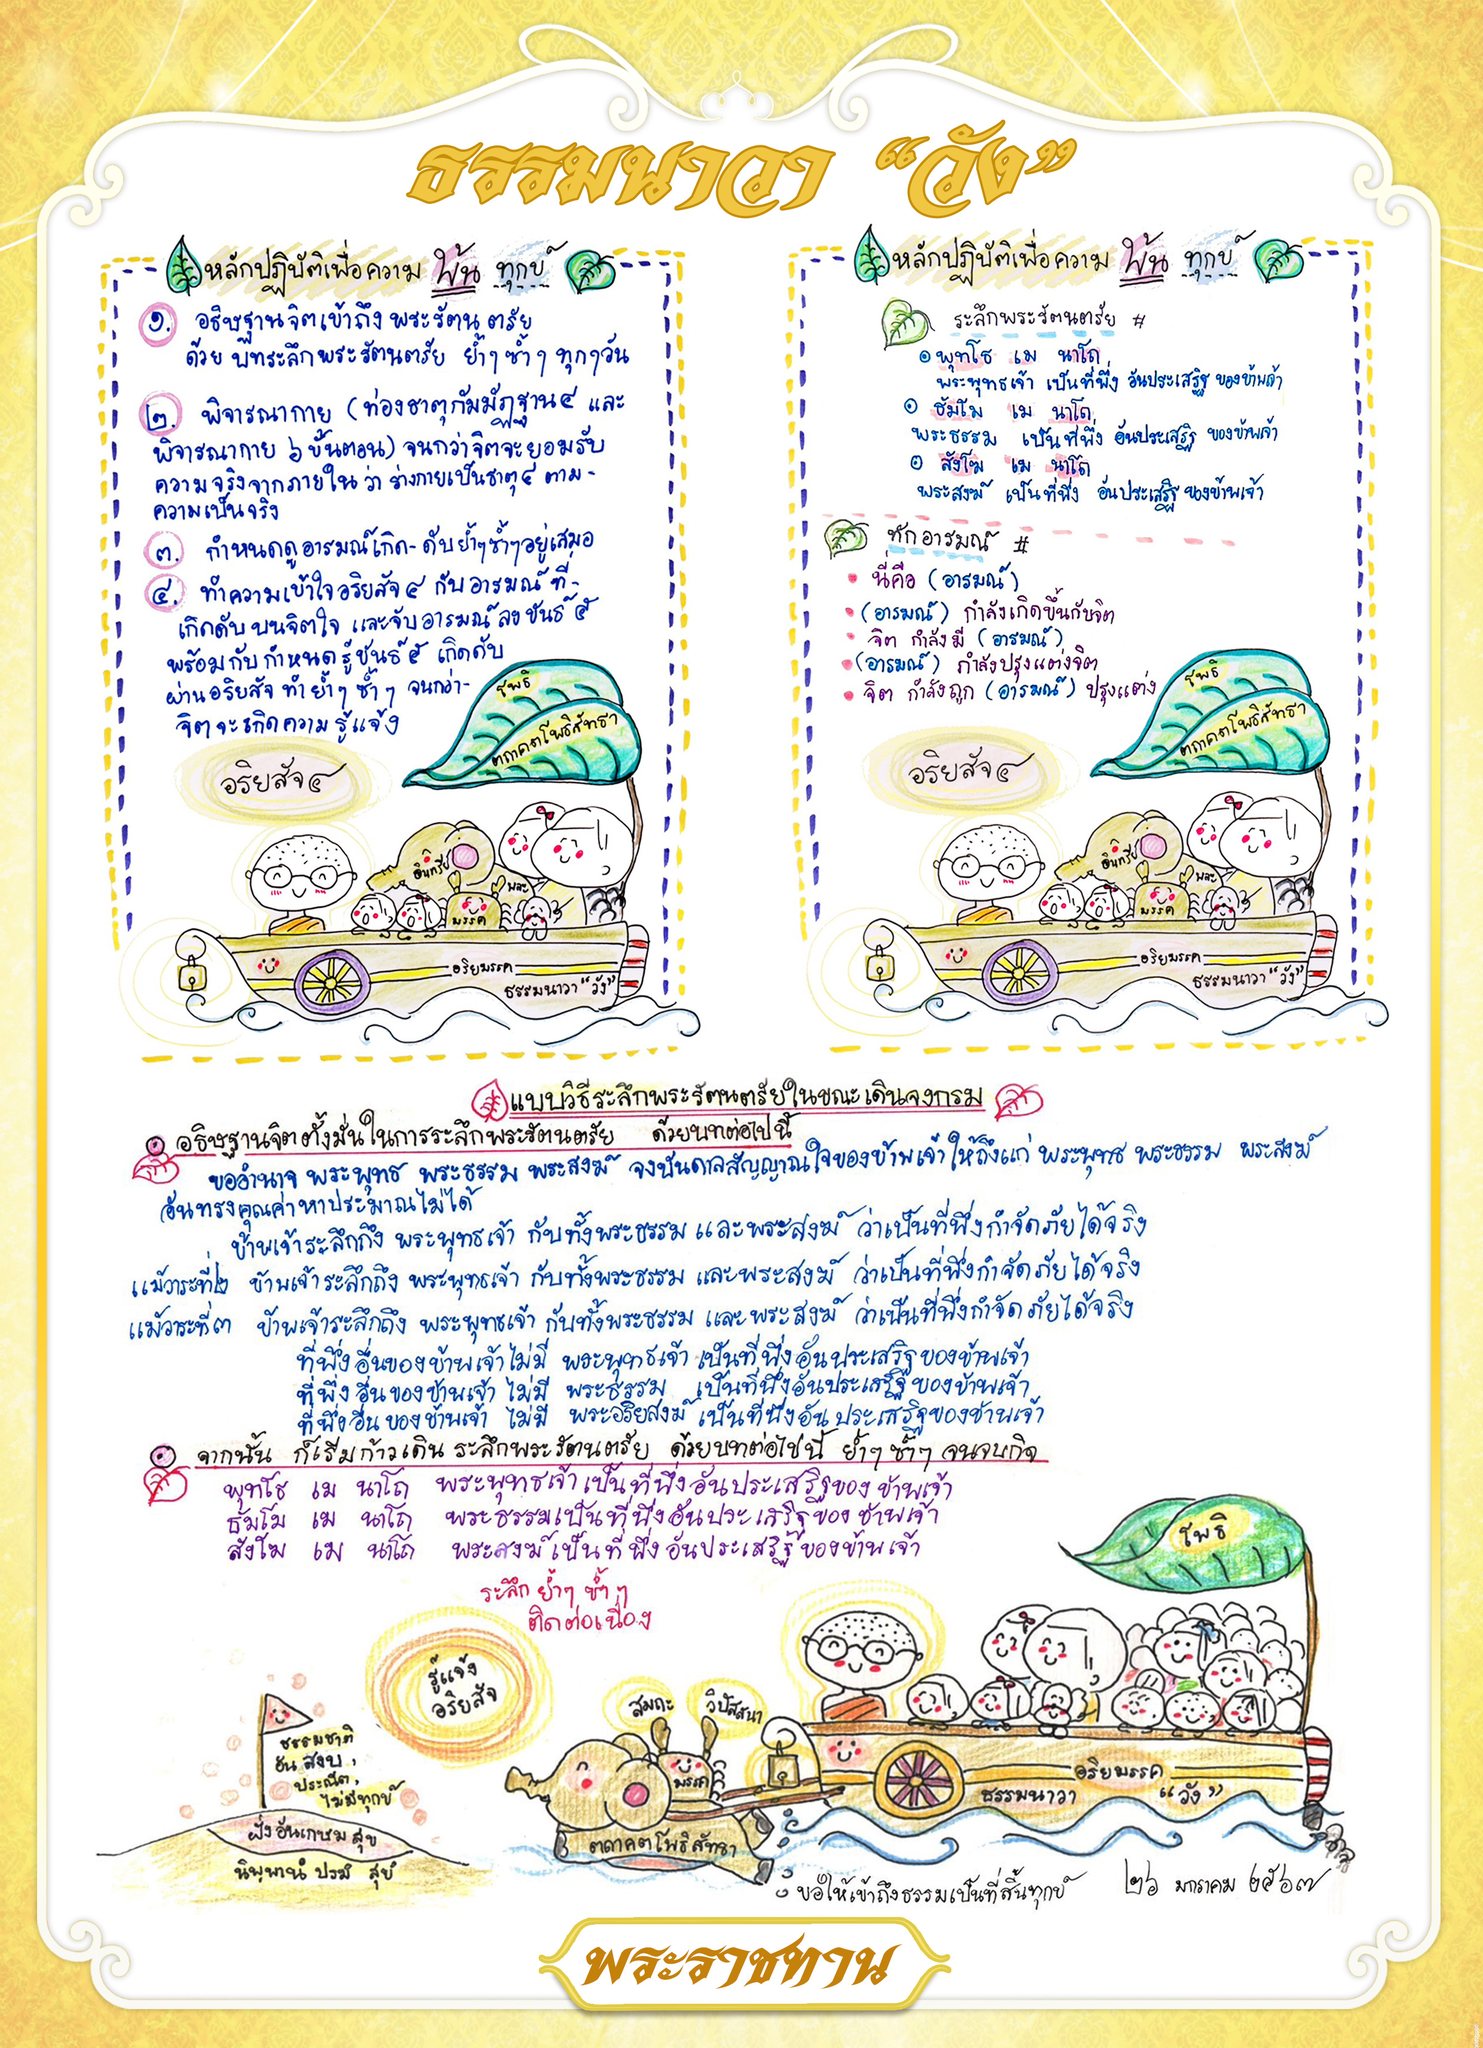 ธรรมนาวา “วัง”
หลักปฏิบัติเพื่อความ พ้น ทุกข์
๑. อธิษฐานจิตเข้าถึงพระรัตนตรัย
ด้วย บทระลึกพระรัตนตรัย ย้ำๆ ซ้ำๆ ทุกๆวัน
๒. พิจารณากาย (ท่องธาตุกัมมัฏฐาน๔ และ
พิจารณากาย ๖ ขั้นตอน) จนกว่าจิตจะยอมรับ
ความจริงจากภายในว่า ร่างกายเป็นธาตุ๔ ตาม-
ความเป็นจริง
๓. กำหนดดูอารมณ์เกิด-ดับย้ำๆซ้ำๆอยู่เสมอ
๔. ทำความเข้าใจอริยสัจ๔ กับอารมณ์ที่-
เกิดดับบนจิตใจ และจับอารมณ์ลงขันธ์๕
พร้อมกับกำหนดรู้ขันธ์๕ เกิดดับ
ผ่านอริยสัจ ทำย้ำๆ ซ้ำๆ จนกว่า-
จิตจะเกิดความรู้แจ้ง
โพธิ
ตถาคตโพธิสัทธา
อริยสัจ๔
อินทรีย์
พละ
มรรค
อริยมรรค
ธรรมนาวา “วัง”
หลักปฏิบัติเพื่อความ พ้น ทุกข์
ระลึกพระรัตนตรัย #
๏ พุทโธ เม นาโถ
พระพุทธเจ้า เป็นที่พึ่ง อันประเสริฐ ของข้าพเจ้า
๏ ธัมโม เม นาโถ
พระธรรม เป็นที่พึ่ง อันประเสริฐ ของข้าพเจ้า
๏ สังโฆ เม นาโถ
พระสงฆ์ เป็นที่พึ่ง อันประเสริฐ ของข้าพเจ้า
ทักอารมณ์ #
• นี่คือ (อารมณ์)
• (อารมณ์) กำลังเกิดขึ้นกับจิต
• จิต กำลังมี (อารมณ์)
• (อารมณ์) กำลังปรุงแต่งจิต
• จิต กำลังถูก (อารมณ์) ปรุงแต่ง
โพธิ
ตถาคตโพธิสัทธา
อริยสัจ๔
อินทรีย์
พละ
มรรค
อริยมรรค
ธรรมนาวา “วัง”
แบบวิธีระลึกพระรัตนตรัยในขณะเดินจงกรม
๏ อธิษฐานจิตตั้งมั่นในการระลึกพระรัตนตรัย ด้วยบทต่อไปนี้
ขออำนาจ พระพุทธ พระธรรม พระสงฆ์ จงบันดาลสัญญาณใจของข้าพเจ้าให้ถึงแก่ พระพุทธ พระธรรม พระสงฆ์
อันทรงคุณค่าหาประมาณไม่ได้
ข้าพเจ้าระลึกถึง พระพุทธเจ้า กับทั้งพระธรรม และพระสงฆ์ ว่าเป็นที่พึ่งกำจัดภัยได้จริง
แม้วาระที่๒ ข้าพเจ้าระลึกถึง พระพุทธเจ้า กับทั้งพระธรรม และพระสงฆ์ ว่าเป็นที่พึ่งกำจัดภัยได้จริง
แม้วาระที่๓ ข้าพเจ้าระลึกถึง พระพุทธเจ้า กับทั้งพระธรรม และพระสงฆ์ ว่าเป็นที่พึ่งกำจัดภัยได้จริง
ที่พึ่งอื่นของข้าพเจ้าไม่มี พระพุทธเจ้า เป็นที่พึ่งอันประเสริฐของข้าพเจ้า
ที่พึ่งอื่นของข้าพเจ้า ไม่มี พระธรรม เป็นที่พึ่งอันประเสริฐของข้าพเจ้า
ที่พึ่งอื่นของข้าพเจ้า ไม่มี พระอริยสงฆ์ เป็นที่พึ่งอันประเสริฐของข้าพเจ้า
๏ จากนั้น ก็เริ่มก้าวเดิน ระลึกพระรัตนตรัย ด้วยบทต่อไปนี้ ย้ำๆ ซ้ำๆ จนจบกิจ
พุทโธ เม นาโถ พระพุทธเจ้าเป็นที่พึ่งอันประเสริฐของ ข้าพเจ้า
ธัมโม เม นาโถ พระธรรมเป็นที่พึ่งอันประเสริฐของ ข้าพเจ้า
สังโฆ เม นาโถ พระสงฆ์เป็นที่พึ่ง อันประเสริฐของข้าพเจ้า
ระลึก ย้ำๆ ซ้ำๆ
ติดต่อเนื่อง
โพธิ
รู้แจ้ง
อริยสัจ
สมถะ วิปัสสนา
มรรค
ธรรมชาติ
อันสงบ,
ประณีต,
ไม่มีทุกข์
ฝั่งอันเกษมสุข
นิพฺพานํ ปรมํ สุขํ
ตถาคตโพธิสัทธา
อริยมรรค
ธรรมนาวา “วัง”
ขอให้เข้าถึงธรรมเป็นที่สิ้นทุกข์
๒๖ มกราคม ๒๕๖๗
พระราชทาน